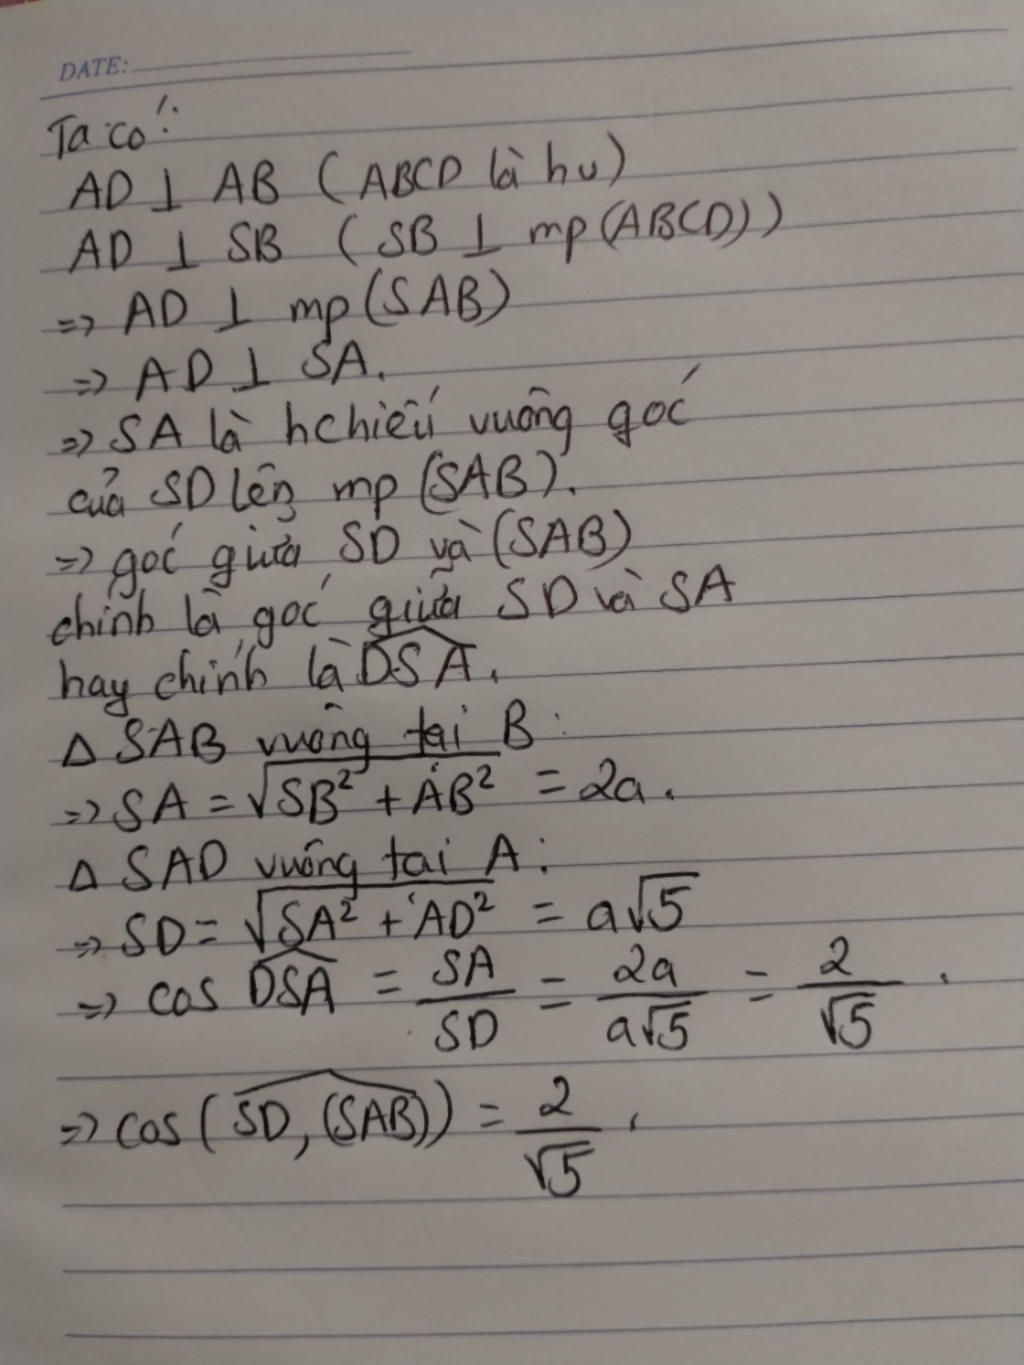 DATE:
Ta có:
AD ⊥ AB (ABCD là hv)
AD ⊥ SB (SB ⊥ mp(ABCD))
=> AD ⊥ mp(SAB)
=> AD ⊥ SA.
=> SA là hchiếu vuông góc
của SD lên mp (SAB).
=> góc giữa SD và (SAB)
chính là góc giữa SD và SA
hay chính là \widehat{DSA}.
Δ SAB vuông tại B:
=> SA = √(SB² + AB²) = 2a.
Δ SAD vuông tại A:
=> SD = √(SA² + AD²) = a√5
=> cos \widehat{DSA} = SA/SD = 2a/(a√5) = 2/√5.
=> cos(\widehat{SD, (SAB)}) = 2/√5.